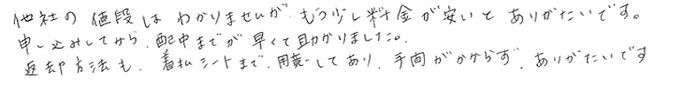 他社の値段はわかりませんが、もう少し料金が安いとありがたいです。
申し込みしてから、配中までが早くて助かりました。
返却方法も、着払シートまで、用意してあり、手間がかからず、ありがたいです